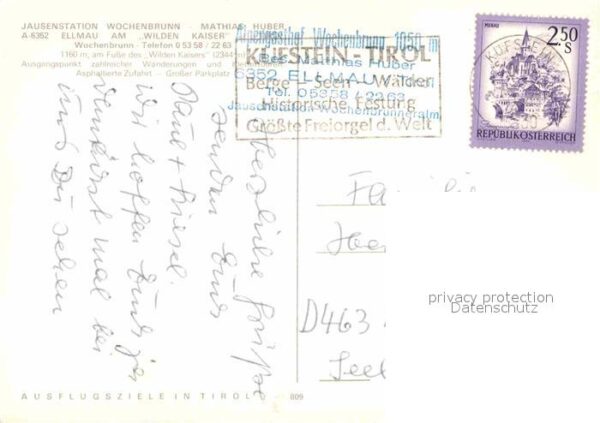 JAUSENSTATION WOCHENBRUNN - MATHIAS HUBER
A-6352 ELLMAU AM „WILDEN KAISER"
Wochenbrunn - Telefon 0 53 58 / 22 63
1160 m, am Fuße des „Wilden Kaisers" (2344 m)
Ausgangspunkt zahlreicher Wanderungen und
Asphaltierte Zufahrt - Großer Parkplatz
Alpengasthof Wochenbrunn 1050 m
Bes. Mathias Huber
6352 ELLMAU/Tirol
Tel. 05358/2263
Jausenstation Wochenbrunneralm
KUFSTEIN - TIROL
Berge - Seen - Wälder
Historische Festung
Größte Freiorgel d. Welt
KUFSTEIN
MURAU
2.50
S
REPUBLIK ÖSTERREICH
Herzliche Grüße
senden Euch
Paul +
Wir hoffen Euch
mal bei
uns zu sehen
D463
privacy protection
Datenschutz
AUSFLUGSZIELE IN TIROL
809